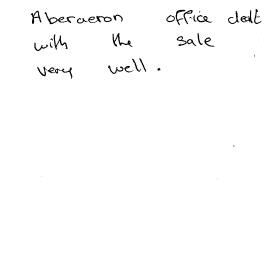 Aberaeron office dealt
with the sale
very well.